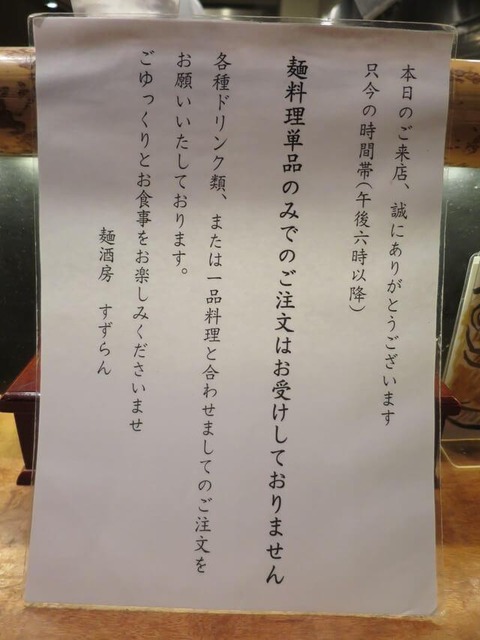 本日のご来店、誠にありがとうございます
只今の時間帯(午後六時以降)
麺料理単品のみでのご注文はお受けしておりません
各種ドリンク類、または一品料理と合わせましてのご注文を
お願いいたしております。
ごゆっくりとお食事をお楽しみくださいませ
麺酒房 すずらん